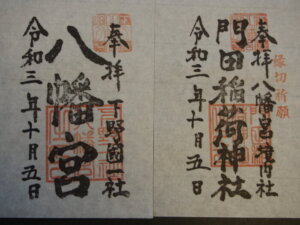 奉拝 八幡宮境内社
縁切祈願
門田稲荷神社
令和三年十月五日
奉拝 下野國一社
八幡宮
令和三年十月五日